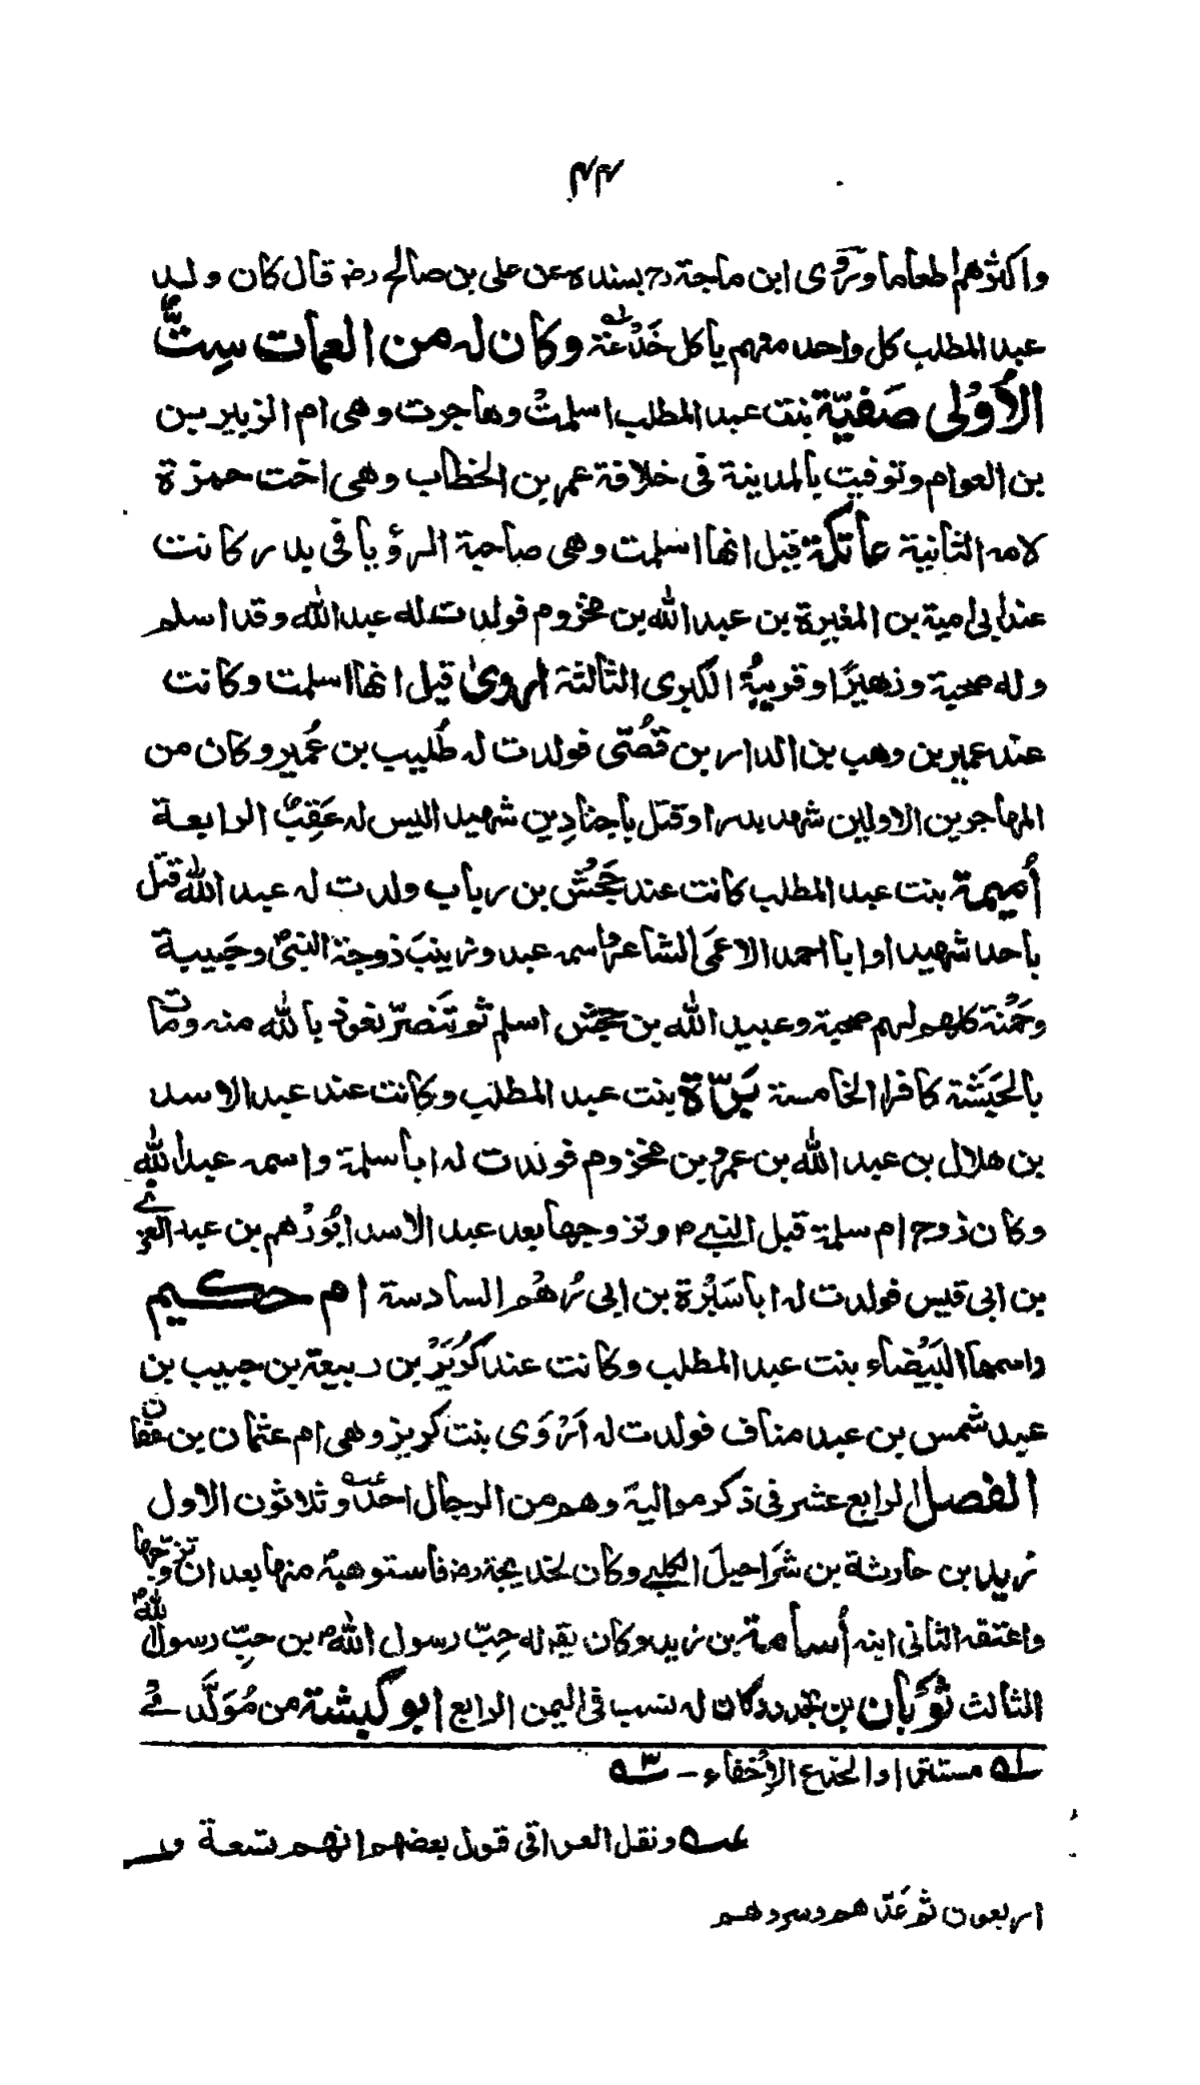 ۴۴
واكثرهم طعاما وروى ابن ماجة رح بسنده عن على بن صالح رضہ قال كان ولد
عبد المطلب كل واحد منهم يأكل جَذْعَة وكان له من العمات سِتٌّ
الأُوْلى صَفيّة بنت عبد المطلب اسلمتْ وهاجرت وهى ام الزبير بن
بن العوام وتوفيت بالمدينة فى خلافة عمر بن الخطاب وهى اخت حمزة
لامه الثانية عاتكة قيل انها اسلمت وهى صاحبة الرؤيا فى بدر كانت
عند ابى امية بن المغيرة بن عبد الله بن مخزوم فولدت له عبد الله وقد اسلم
وله صحبة وزهيرًا وقريبةُ الكبرى الثالثة اروىٰ قيل انها اسلمت وكانت
عند عمير بن وهب بن الدار بن قُصّى فولدت له طُليب بن عُمير وكان من
المهاجرين الاولين شهد بدرا وقتل بأجنادِين شهيدا ليس له عَقِبٌ الرابعة
أُميمة بنت عبد المطلب كانت عند جَحْش بن رياب ولدت له عبد الله قتل
بأحد شهيدا وابا احمد الاعمَى الشاعر اسمه عبد وزينبَ زوجة النبىؐ وحَبيبة
وحَمْنة كلهم لهم صحبة وعبيد الله بن جحش اسلم ثم تَنصرّ نعوذ بالله منه ومات
بالحَبَشَة كافرا الخامسة بَرّة بنت عبد المطلب وكانت عند عبد الاسد
بن هلال بن عبد الله بن عمر بن مخزوم فولدت له ابا سلمة واسمه عبد الله
وكان زوج ام سلمة قبل النبي م وتزوجها بعد عبد الاسد ابُورُهم بن عبد العزى
بن ابى قيس فولدت له ابا سَبْرة بن ابى رُهْم السادسة ام حكيم
واسمها البَيْضاء بنت عبد المطلب وكانت عند كُرَيْز بن ربيعة بن حبيب بن
عبد شمس بن عبد مناف فولدت له اَرْوَى بنت كريز وهى ام عثمان بن عفان
الفصل الرابع عشر فى ذكر مواليه وهم من الرجال احد وثلاثون الاول
زيد بن حارثة بن شَراحيلَ الكلبي وكان لخديجة رضہ فاستوهبهُ منها بعد ان تزوّجها
واعتقه الثانى ابنه أُسامة بن زيد وكان يقہ له حِبّ رسول اللهم بن حبِّ رسول اللهؐ
الثالث ثَوْبَان بن بجدد وكان له نسب فى اليمن الرابع ابو كبشة من مُوَلَّدي
عہ ونقل العراقى قول بعضهم انهم تسعة و
اربعون ثم عَدّهم وسردهم